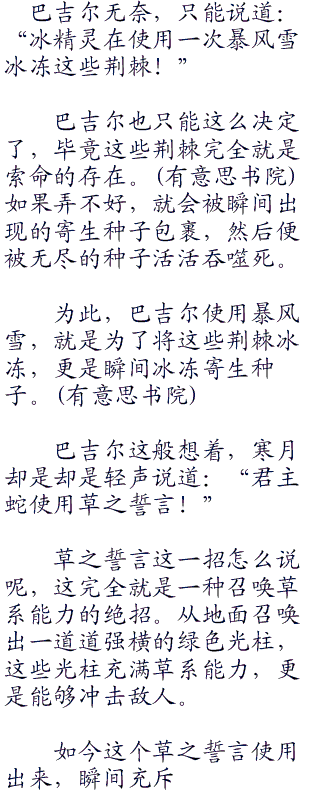 巴吉尔无奈，只能说道：
“冰精灵在使用一次暴风雪
冰冻这些荆棘！”
巴吉尔也只能这么决定
了，毕竟这些荆棘完全就是
索命的存在。(有意思书院)
如果弄不好，就会被瞬间出
现的寄生种子包裹，然后便
被无尽的种子活活吞噬死。
为此，巴吉尔使用暴风
雪，就是为了将这些荆棘冰
冻，更是瞬间冰冻寄生种
子。(有意思书院)
巴吉尔这般想着，寒月
却是却是轻声说道：“君主
蛇使用草之誓言！”
草之誓言这一招怎么说
呢，这完全就是一种召唤草
系能力的绝招。从地面召唤
出一道道强横的绿色光柱，
这些光柱充满草系能力，更
是能够冲击敌人。
如今这个草之誓言使用
出来，瞬间充斥